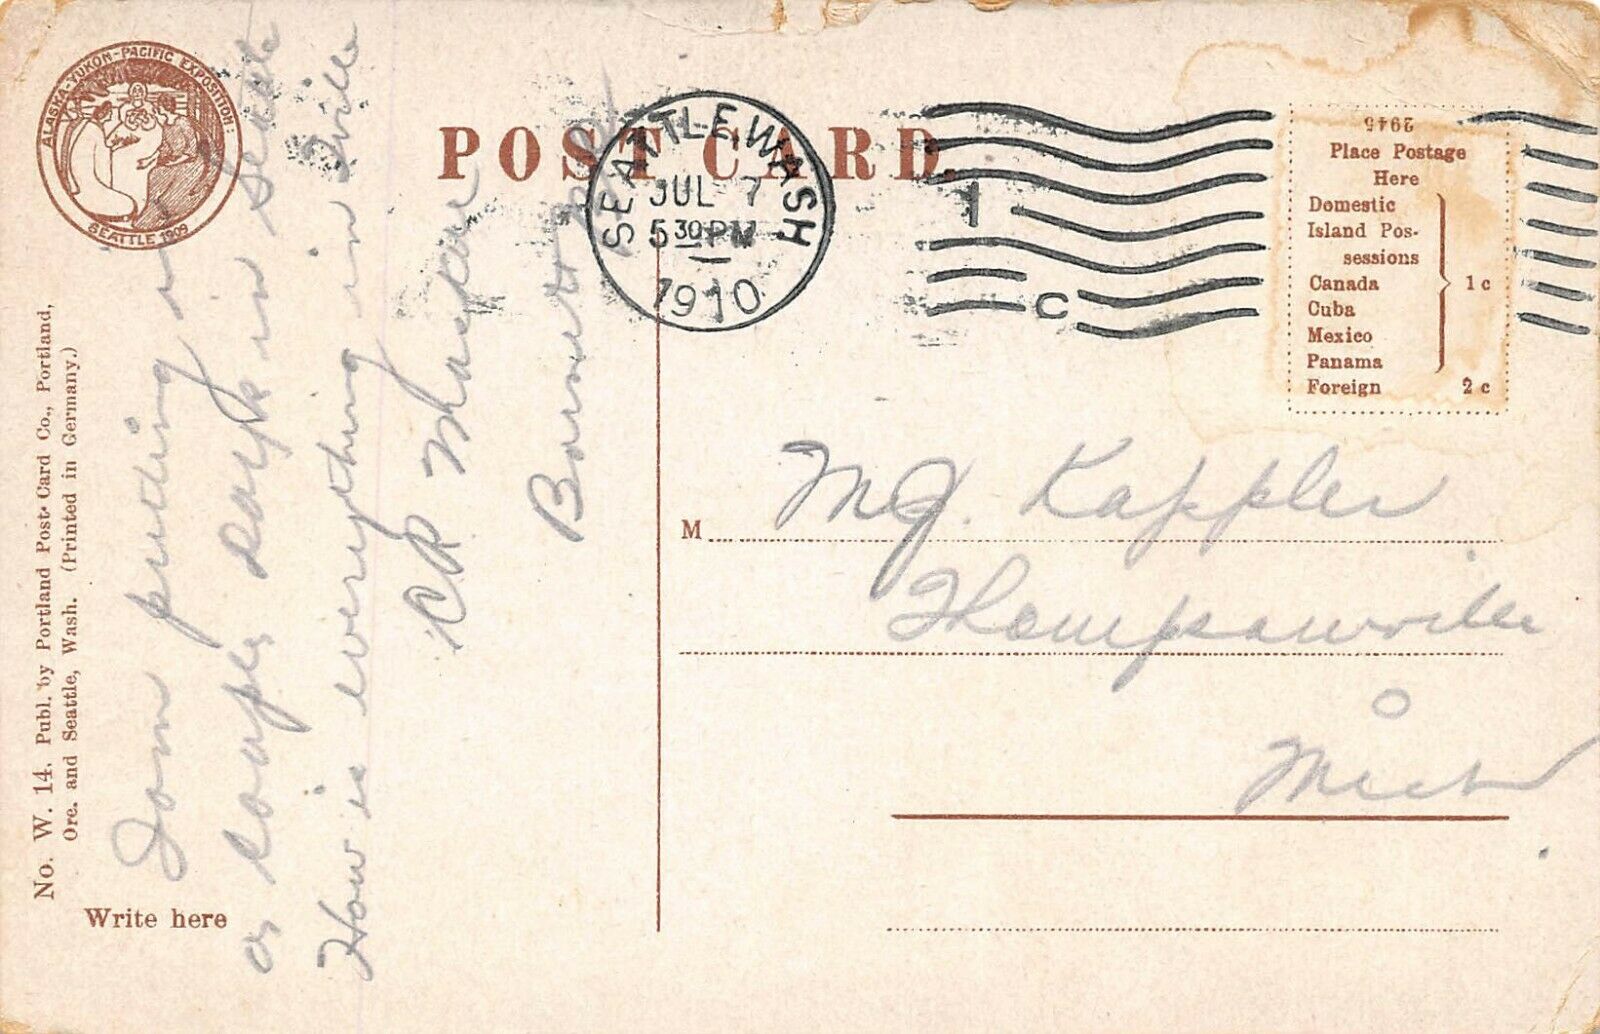 ALASKA-YUKON-PACIFIC EXPOSITION:
SEATTLE 1909
POST CARD.
SEATTLE, WASH
JUL 7
5 30 PM
1910
1
C
2945
Place Postage
Here
Domestic
Island Pos-
sessions
Canada
Cuba
Mexico
Panama
1c
Foreign 2c
No. W. 14. Publ. by Portland Post Card Co., Portland,
Ore. and Seattle, Wash. (Printed in Germany.)
Write here
puting in
a days in Seattle
How is everything in Tville
CR
M
Kappler
Thompsonville
Mich